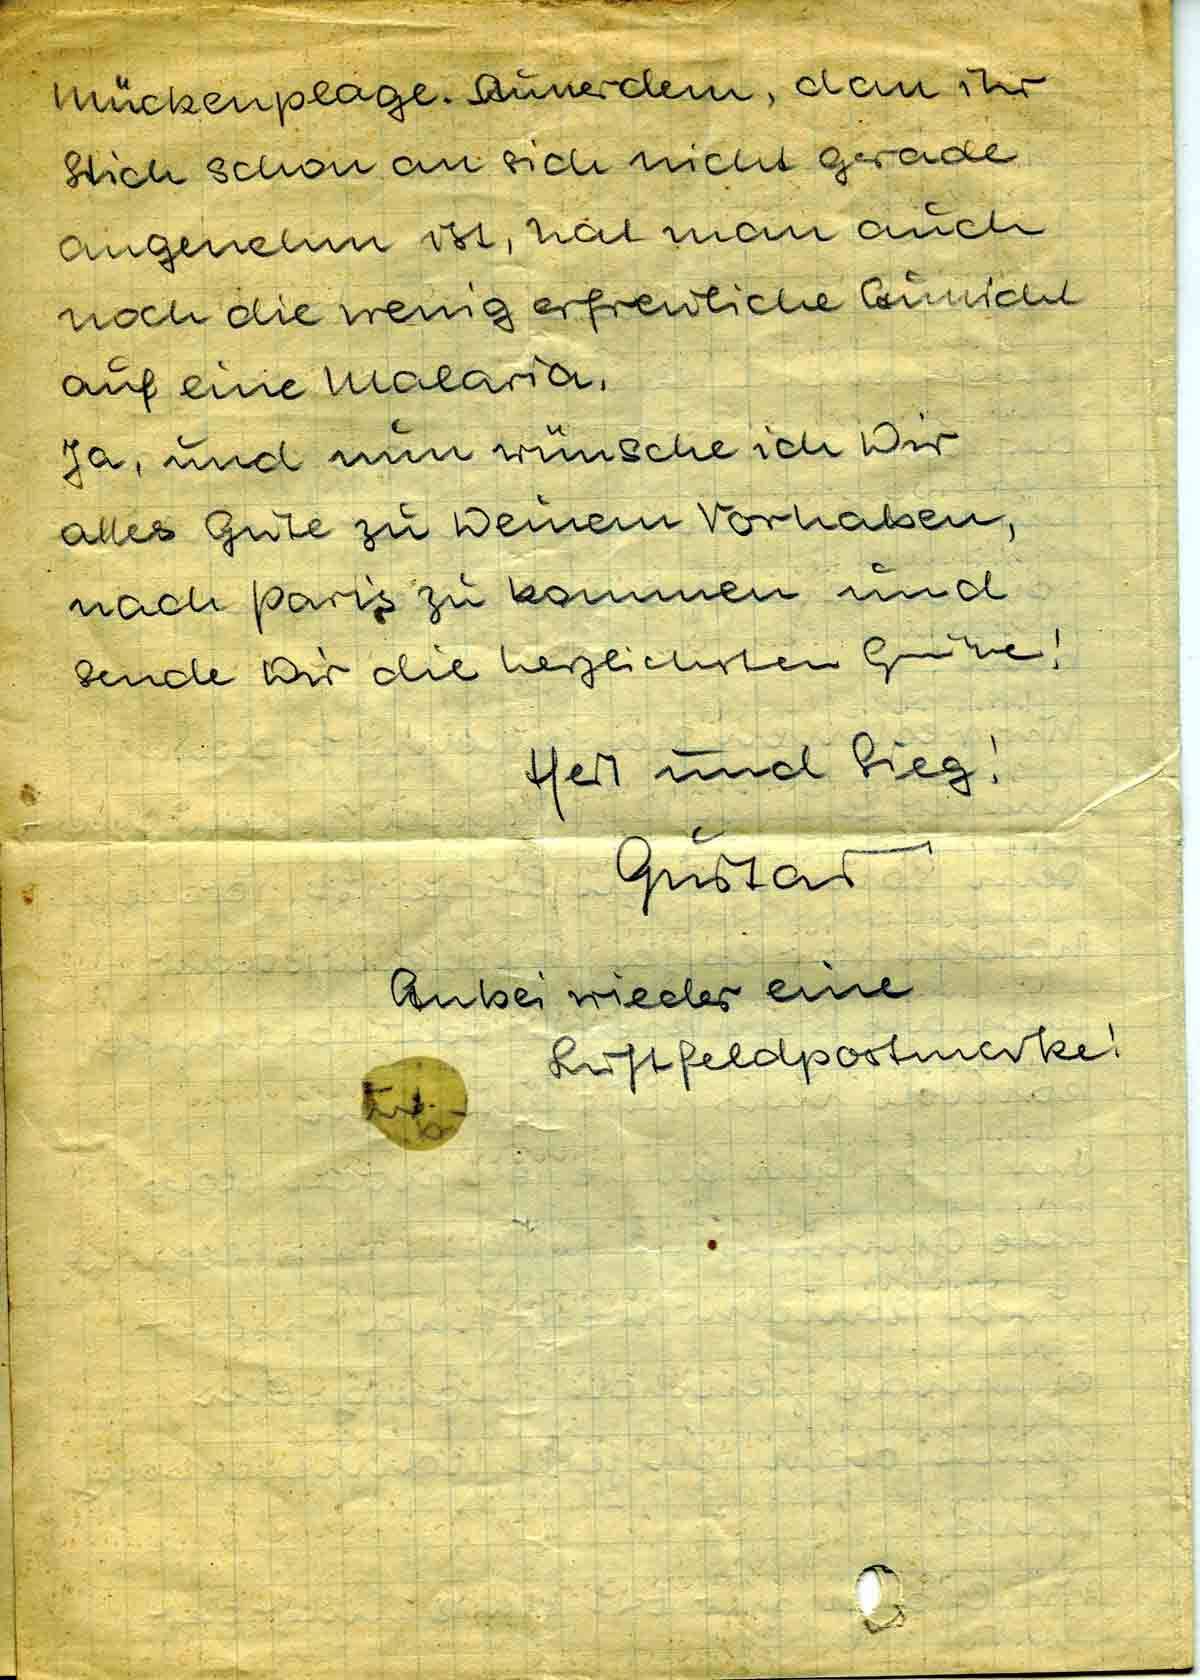 Mückenplage. Ausserdem, dass ihr
Stich schon an sich nicht gerade
angenehm ist, hat man auch
noch die wenig erfreuliche Aussicht
auf eine Malaria.
Ja, und nun wünsche ich Dir
alles Gute zu Deinem Vorhaben,
nach Paris zu kommen und
sende Dir die herzlichsten Grüsse!
Heil und Sieg!
Gustav
Anbei wieder eine
Luftfeldpostmarke!